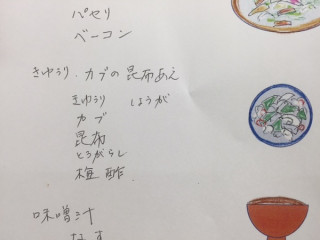 パセリ
ベーコン
きゅうり、カブの昆布あえ
きゅうり しょうが
カブ
昆布
とうがらし
梅酢
味噌汁
なす